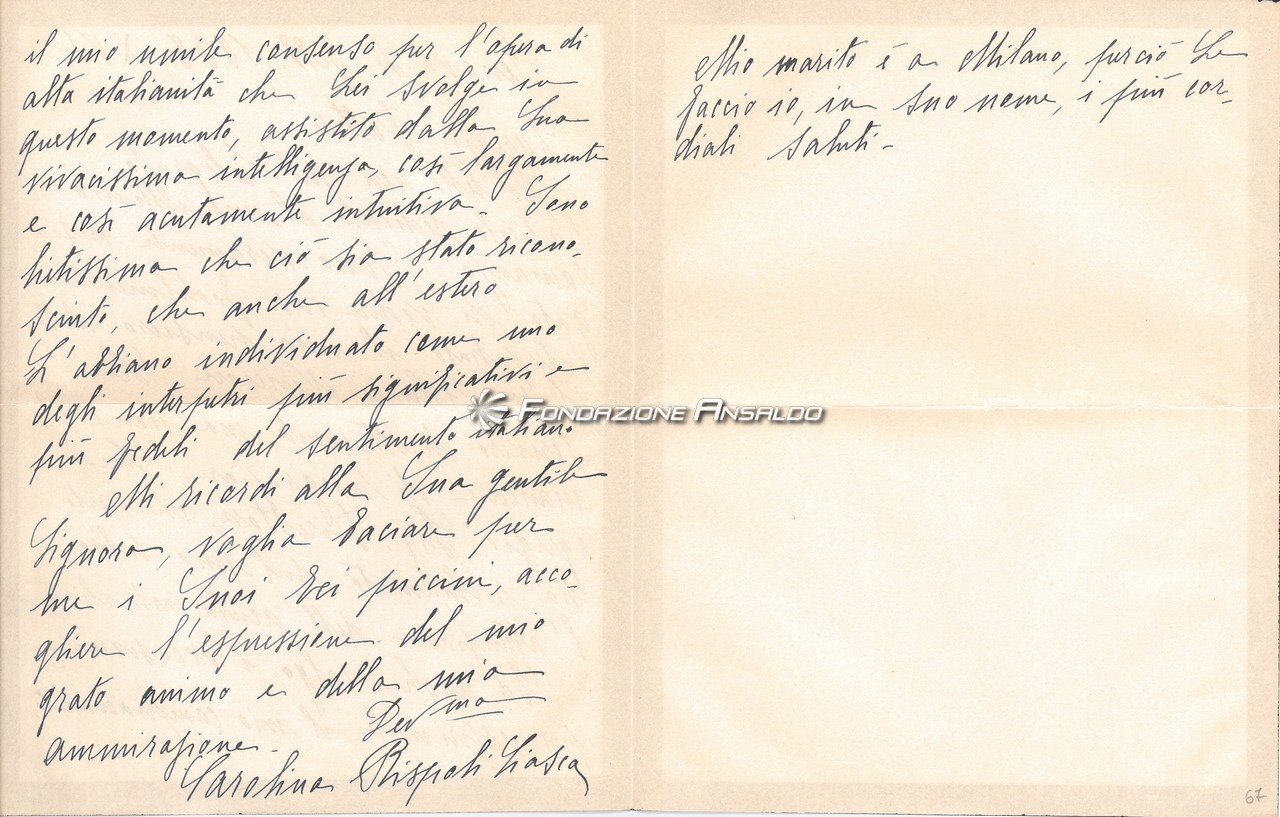 il mio umile consenso per l'opera di
alta italianità che Lei svolge in
questo momento, assistito dalla Sua
vivacissima intelligenza, così largamente
e così acutamente intuitiva. Sono
lietissima che ciò sia stato ricono-
sciuto, che anche all'estero
L'abbiano individuato come uno
degli interpetri più significativi e
più fedeli del sentimento italiano
Mi ricordi alla Sua gentile
Signora, voglia baciare per
me i Suoi bei piccini, acco-
gliere l'espressione del mio
grato animo e della mia
ammirazione.
Dev.ma
Carolina Rispoli Ciasca
Mio marito è a Milano, perciò Le
faccio io, in suo nome, i più cor-
diali saluti-
67
FONDAZIONE ANSALDO